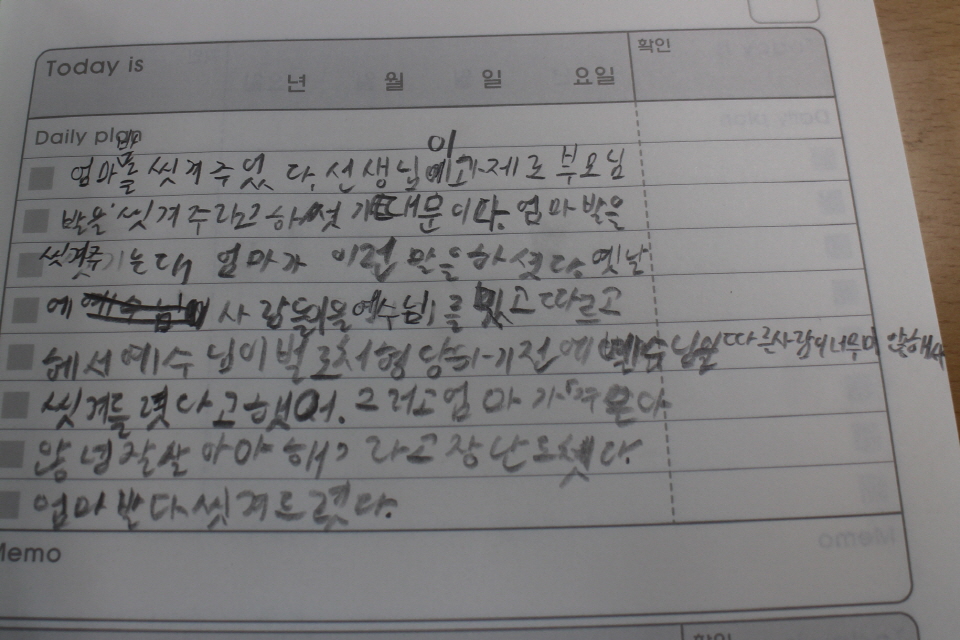 Today is
년 월 일 요일
확인
Daily plan
엄마 발을 씻겨 주었다. 선생님이 과제로 부모님
발을 씻겨주라고 하셧기 때문이다. 엄마 발을
씻겨주기는데, 엄마가 이런 말을 하셧다. 옛날
에 사람들이 예수님를 믿고 따르고
해서 예수님이 벌로 처형 당하기 전에 예수님을 따른사람이 너무미 안해서
씻겨를 렷다고 했어. 그러고 엄마가
왕 넘 잘 살아야해? 라고 장난도 쳇다.
엄마 발 다 씻겨드렷다.
Memo
확인